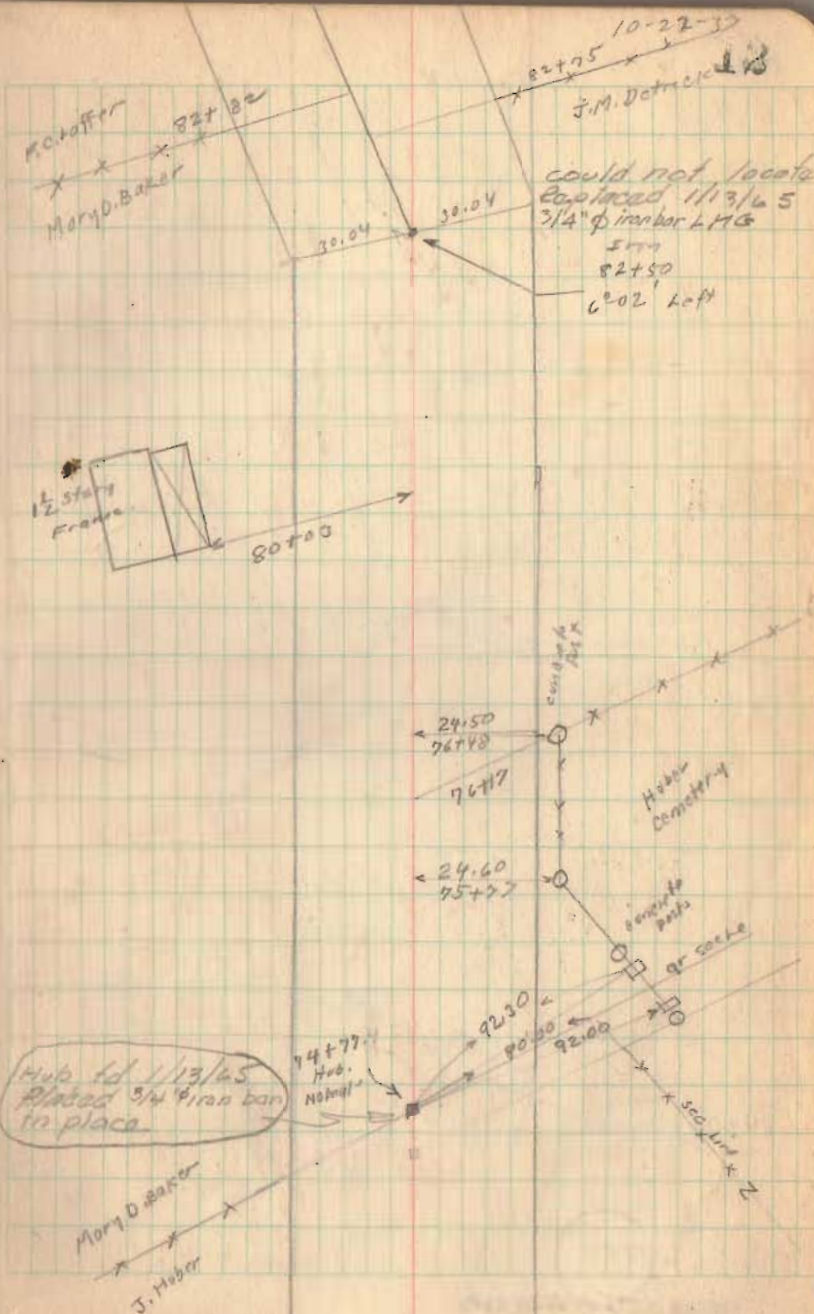 10-22-37
18
82+75
J.M. Detrick
82+82
Mary D. Baker
could not locate
Replaced 1/13/65
3/4" ø iron bar LMG
82+50
6°-02' Left
30.04
30.04
1½ Story
Frame
80+03
concrete
24.50
76+48
76+17
Huber
Cemetery
24.60
75+77
concrete
posts
92.30
80.00
92.00
74+77.4
Hub.
Hub fd 1/13/65
Placed 3/4" ø iron bar
in place
sec line
Mary D. Baker
J. Huber